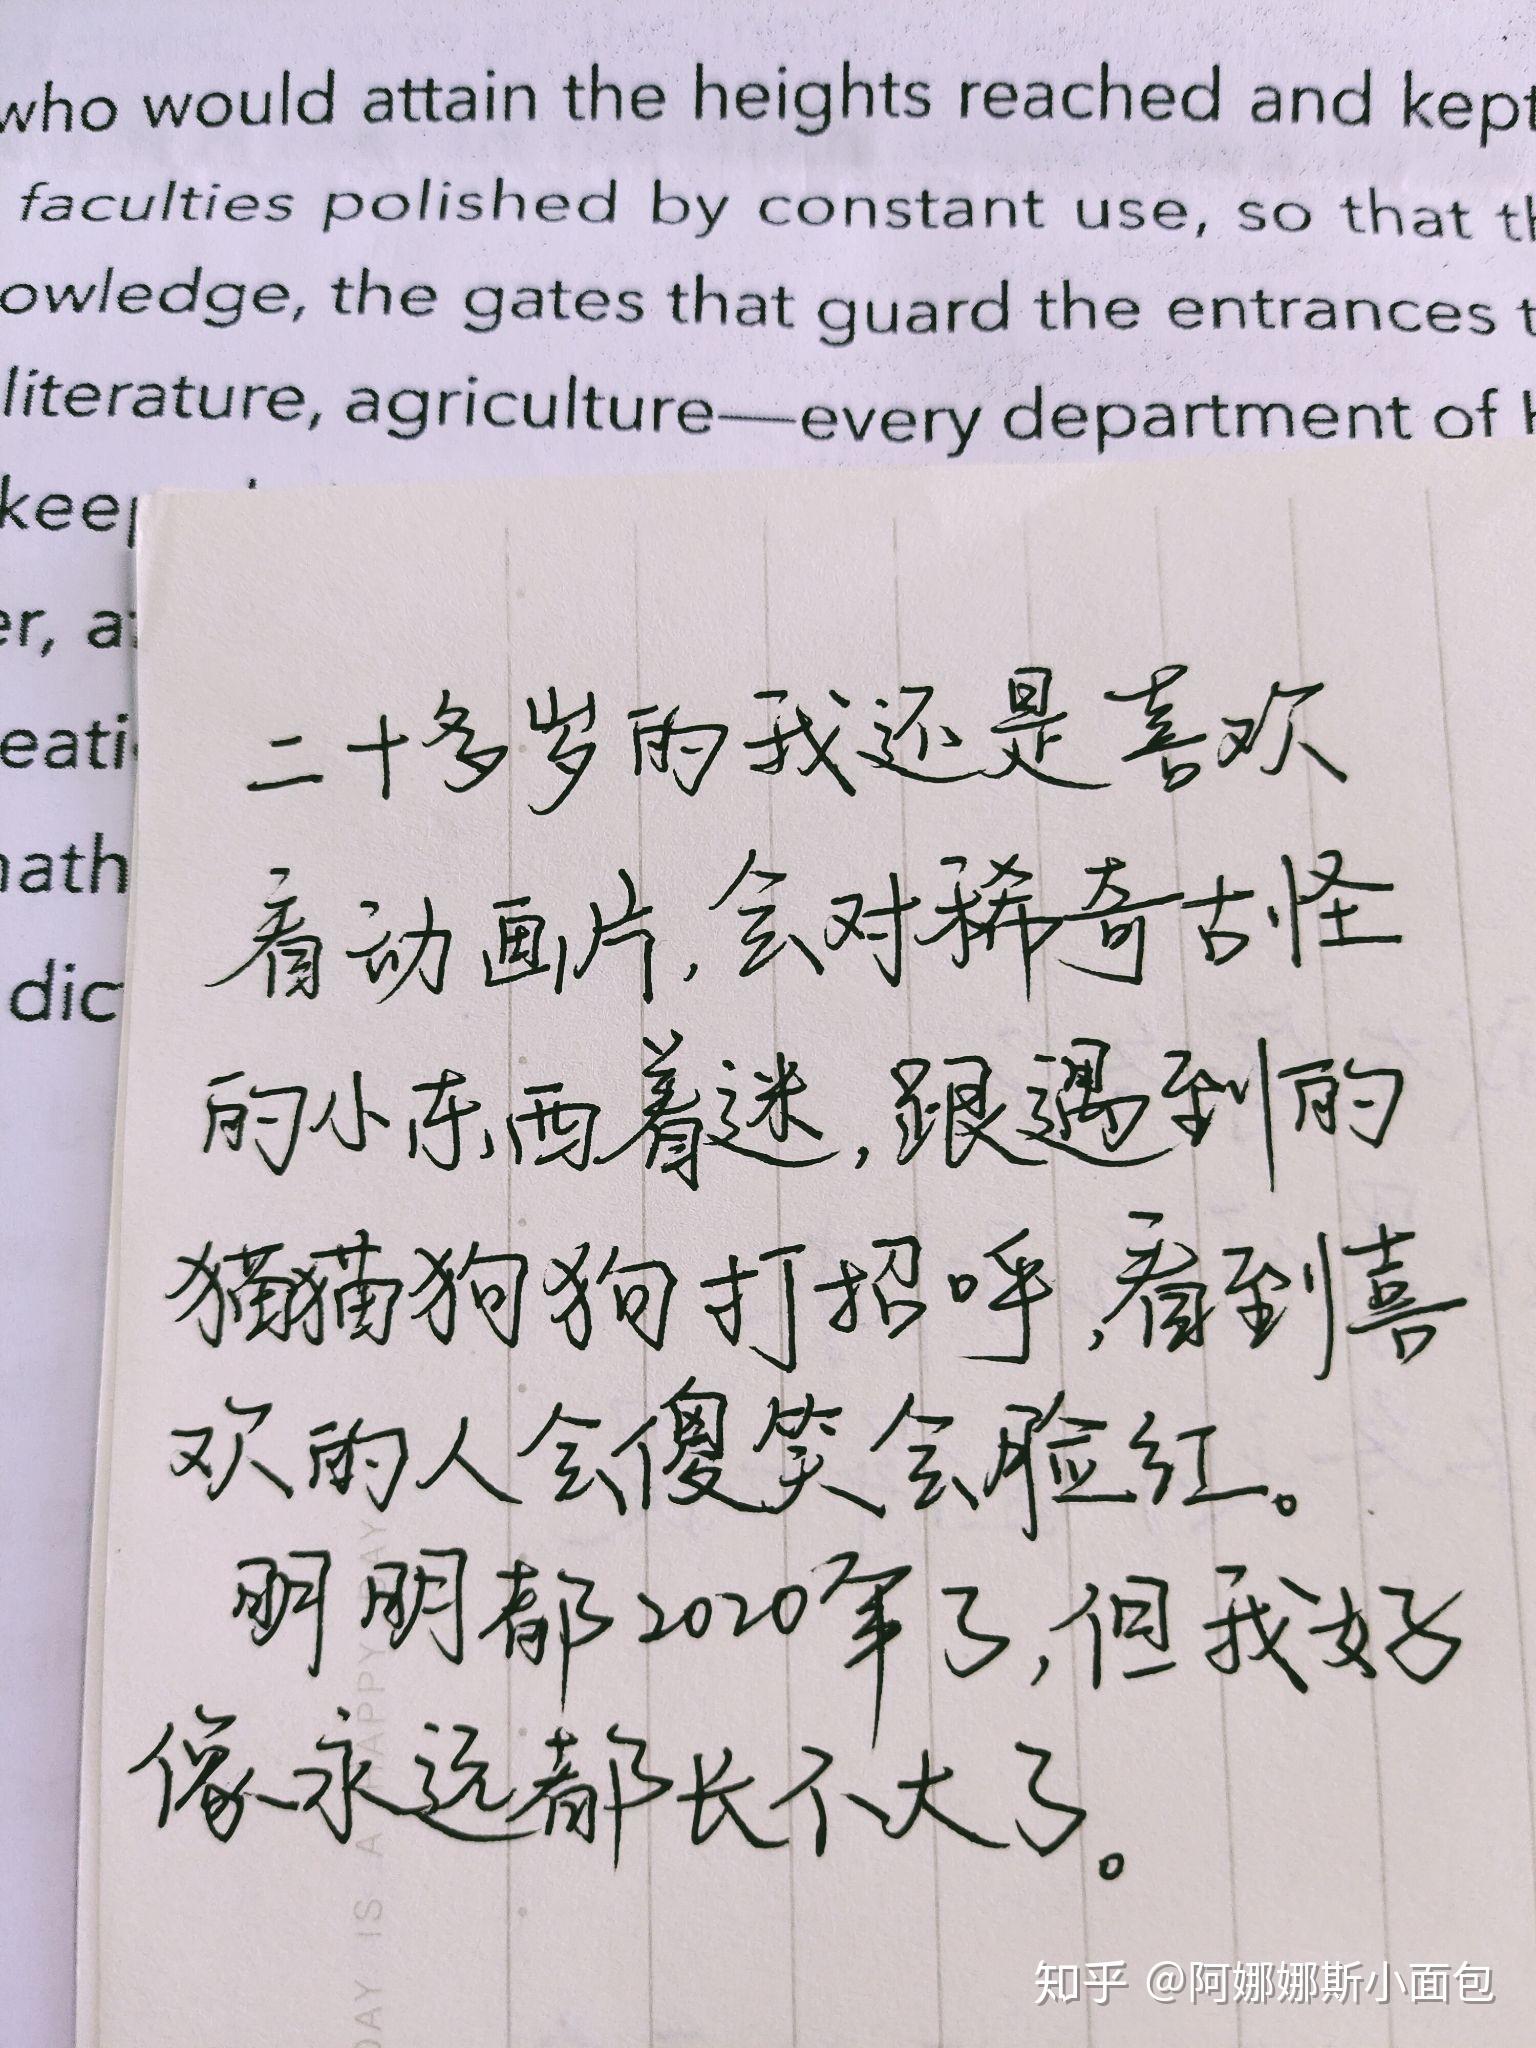 who would attain the heights reached and kept
faculties polished by constant use, so that th
owledge, the gates that guard the entrances t
literature, agriculture—every department of h
keep
er, at
eati
math
dic
二十多岁的我还是喜欢
看动画片,会对稀奇古怪
的小东西着迷,跟遇到的
猫猫狗狗打招呼,看到喜
欢的人会傻笑会脸红。
明明都2020年了,但我好
像永远都长不大了。
DAY IS A HAPPY DAY
知乎 @阿娜娜斯小面包